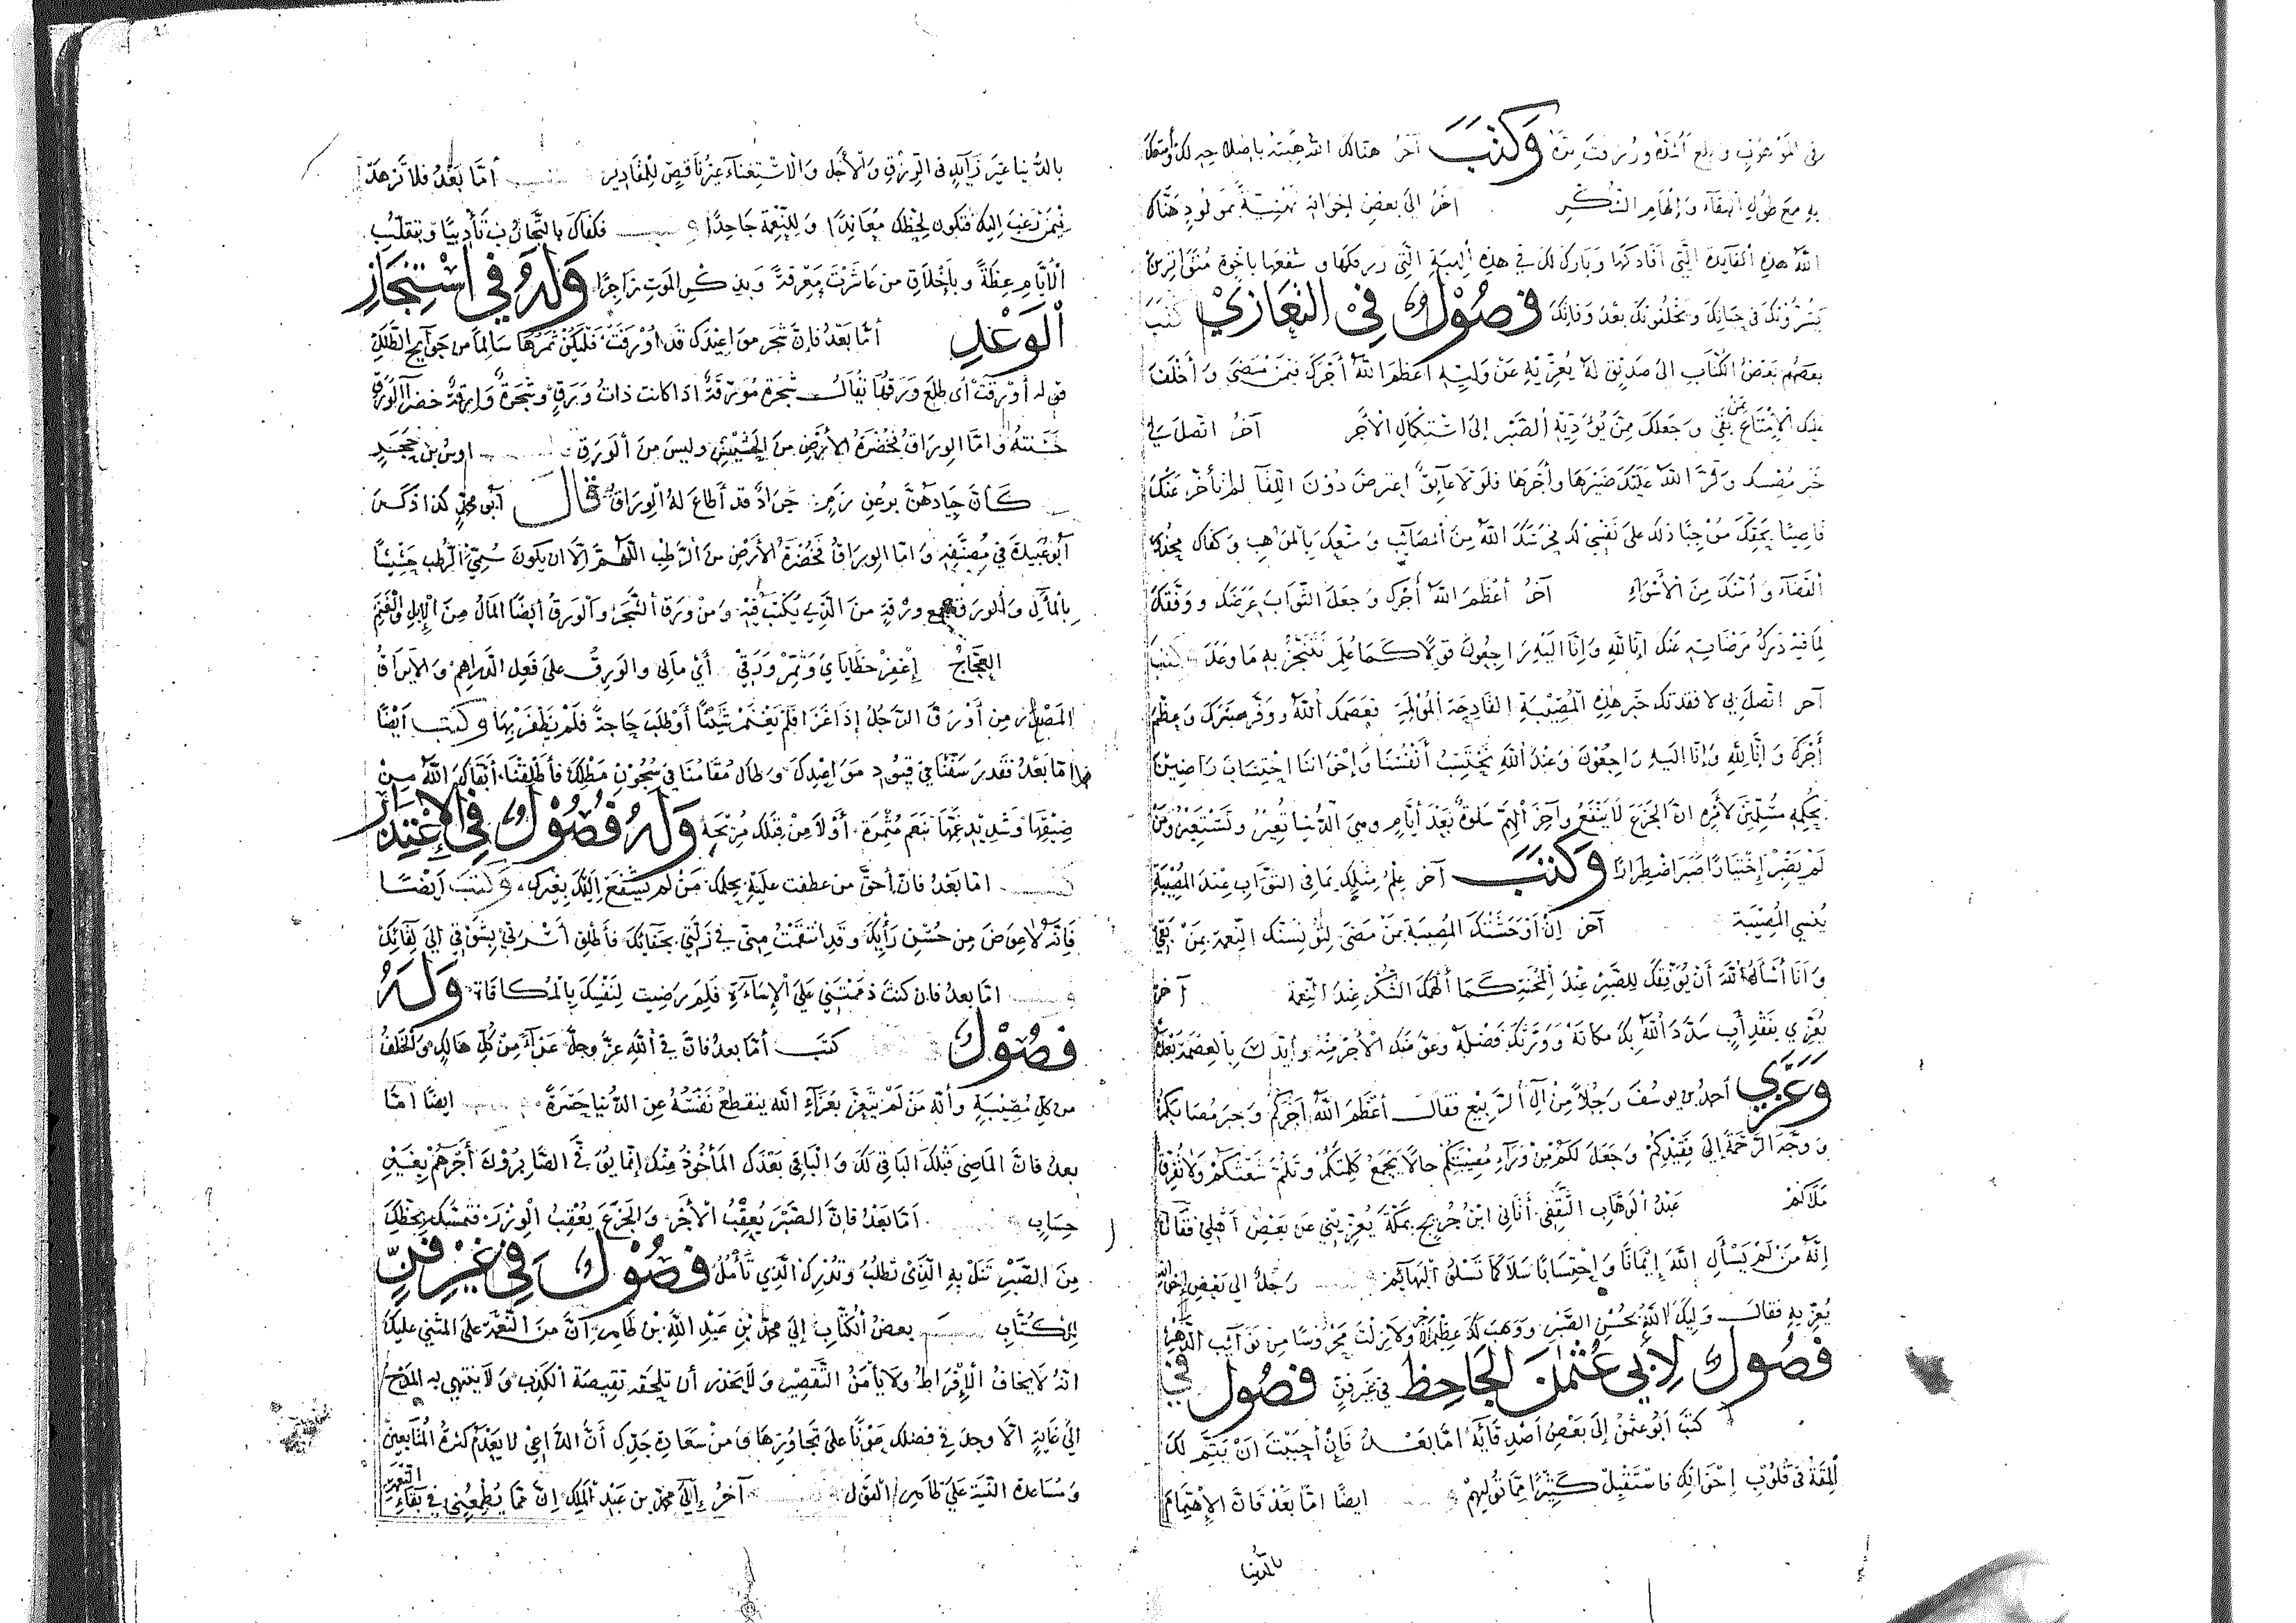 في الموهوب وبلغ اشده ورزقت بره وكتب آخر هناك الله هبته باصلاحه لك وامتعك
به مع طول البقاء والهام الشكر اخر الى بعض اخوانه تهنية بمولود هناك
الله هذه الفايدة التي افادكها وبارك لك في هذه الهبة التي رزقكها وشفعها باخوة متواترين
يسرونك في حياتك ويخلفونك بعد وفاتك فصول في التعازي كتب
بعضهم بعض الكتاب الى صديق له يعزيه عن وليه اعظم الله اجرك فيمن مضى واخلف
عليك الامتاع بمن بقي وجعلك ممن يؤديه الصبر الى استكمال الاجر آخر اتصل بي
خبر وفر الله عليك خيرها واجرها فلولا عايق اعترض دون اللقا لم تأخر عنك
قاضيا بحقك موجبا ذلك على نفسي لك فحرسك الله من المصايب ومتعك بالمواهب وكفاك محذور
القضاء وامنك من الاسواء آخر أعظم الله أجرك وجعل الثواب عوضك ووفقك
لما فيه درك مرضاته عنك انا لله وانا اليه راجعون قولا كما علم نتنجز به ما وعد وكتب
آخر اتصل بي لا فقدتك خبر هذه المصيبة الفادحة المؤلمة فعصمك الله ووفر صبرك وعظم
أجرك وانا لله وانا اليه راجعون وعند الله نحتسب أنفسنا وإخواننا احتساب راضين
بحكمه مسلمين لأمره ان الجزع لا ينفع وآخر الهم سلوة بعد أيام وهي الدنيا تعير وتسترد ومن
لم يصبر إختيارا صبر اضطرارا وكتب آخر علم مثلك بما في الثواب عند المصيبة
ينسي المصيبة آخر ان أوحشتك المصيبة بمن مضى لتؤنسنك النعمة بمن بقي
وانا أسأل الله أن يوفقك للصبر عند المحنة كما ألهمك الشكر عند النعمة آخر
يعزي بفقد أب سدد الله بك مكانه وورثك فضله وعوضك الأجر منه وأيدك بالعصمة بعده
وعزي أحمد بن يوسف رجلا من آل الربيع فقال أعظم الله أجركم وجبر مصابكم
ووجه الرحمة إلى فقيدكم وجعل لكم من وراء مصيبتكم حالا يجمع كلمتكم وتلم شعثكم ولا تفرق
ملاكم عبد الوهاب الثقفي أتاني ابن جريج بمكة يعزيني عن بعض أهلي فقال
انه من لم يسأل الله إيمانا وإحتسابا سلا كما تسلو البهايم رجل الى بعض إخوانه
يعزيه فقال وليك الله بحسن الصبر ووهب لك عظيم الأجر ولا زلت محروسا من نوايب الدهر
فصول لأبي عثمن الجاحظ في غير فن فصول في
كتب أبو عثمن إلى بعض أصدقايه اما بعد فإن أحببت أن تتم لك
المقة في قلوب إخوانك فاستقبل كثيرا مما توليهم ايضا امّا بعد فان الإهتمام
بالدنيا
بالدنيا غير زايد في الرزق والأجل والاستغناء غير ناقص للمقادير أما بعد فلا تزهدن
فيمن رغب اليك فتكون لحظك معاندا وللنعمة جاحدا فكفاك بالتجارب تأديبا وبتقلب
الأيام عظة وبأخلاق من عاشرت معرفة وبذكر الموت زاجرا وله في استنجاز
الوعد أما بعد فإن شجر مواعيدك قد أورقت فليكن ثمرها سالما من جوايح المطل
قوله أورقت أي طلع ورقها يقال شجرة مورقة اذا كانت ذات ورق وشجرة وارقة خضرا الورق
حسنته واما الوراق فخضرة الأرض من الحشيش وليس من الورق اوس بن حجر
كأن جيادهن برعن زم جراد قد أطاع له الوراق قال أبو محمد كذا ذكر
أبو عبيدة في مصنفه واما الوراق فخضرة الأرض من الرطب اللهم الا ان يكون سمي الرطب حشيشا
بالمآل والورق جمع ورقة من الذي يكتب فيه ومن ورق الشجر والورق أيضا المال من الإبل والغنم
العجاج إغفر خطاياي وثمر ورقي أي مالي والورق على فعل الدراهم والايراق
المصدر من أورق الرجل إذا غزا فلم يغنم شيئا أو طلب حاجة فلم يظفر بها وكتب أيضا
اما بعد فقد رسفنا في قيود مواعيدك وطال مقامنا في سجون مطلك فأطلقنا أبقاك الله من
ضيقها وشديد غمها بنعم مثمرة أو لا من قبلك مريحة وله فصول في الإعتذار
كتب اما بعد فان أحق من عطفت عليه بحلمك من لم يتشفع إليك بغيرك وكتب أيضا
فإنه لا عوض من حسن رأيك وقد انتقمت مني في زلتي بجفائك فأطلق أسر تشوقي إلى لقائك
اما بعد فان كنت ذممتني على الإساءة فلم رضيت لنفسك بالمكافاة وله
فصول كتب أما بعد فان في الله عز وجل عزاء من كل هالك والخلف
من كل مصيبة وأنه من لم يتعز بعزاء الله ينقطع نفسه عن الدنيا حسرة ايضا أما
بعد فان الماضي قبلك الباقي لك والباقي بعدك المأخوذ منك إنما يوفى الصابرون أجرهم بغير
حساب أما بعد فان الصبر يعقب الأجر والجزع يعقب الوزر فتمسك بحظك
من الصبر تنل به الذي تطلب وتدرك الذي تأمل فصول في غير فن
للكتاب بعض الكتاب إلى محمد بن عبد الله بن طاهر ان من النعمة على المثني عليك
انه لا يخاف الإفراط ولا يأمن التقصير ولا يحذر أن تلحقه نقيصة الكذب ولا ينتهي به المدح
الى غاية الا وجد في فضلك عونا على تجاوزها ومن سعادة جدك أن الداعي لا يعدم كثرة المتابعين
ومساعدة النية على ظاهر القول آخر إلى محمد بن عبد الملك إن مما يطمعني في بقاء النعمة